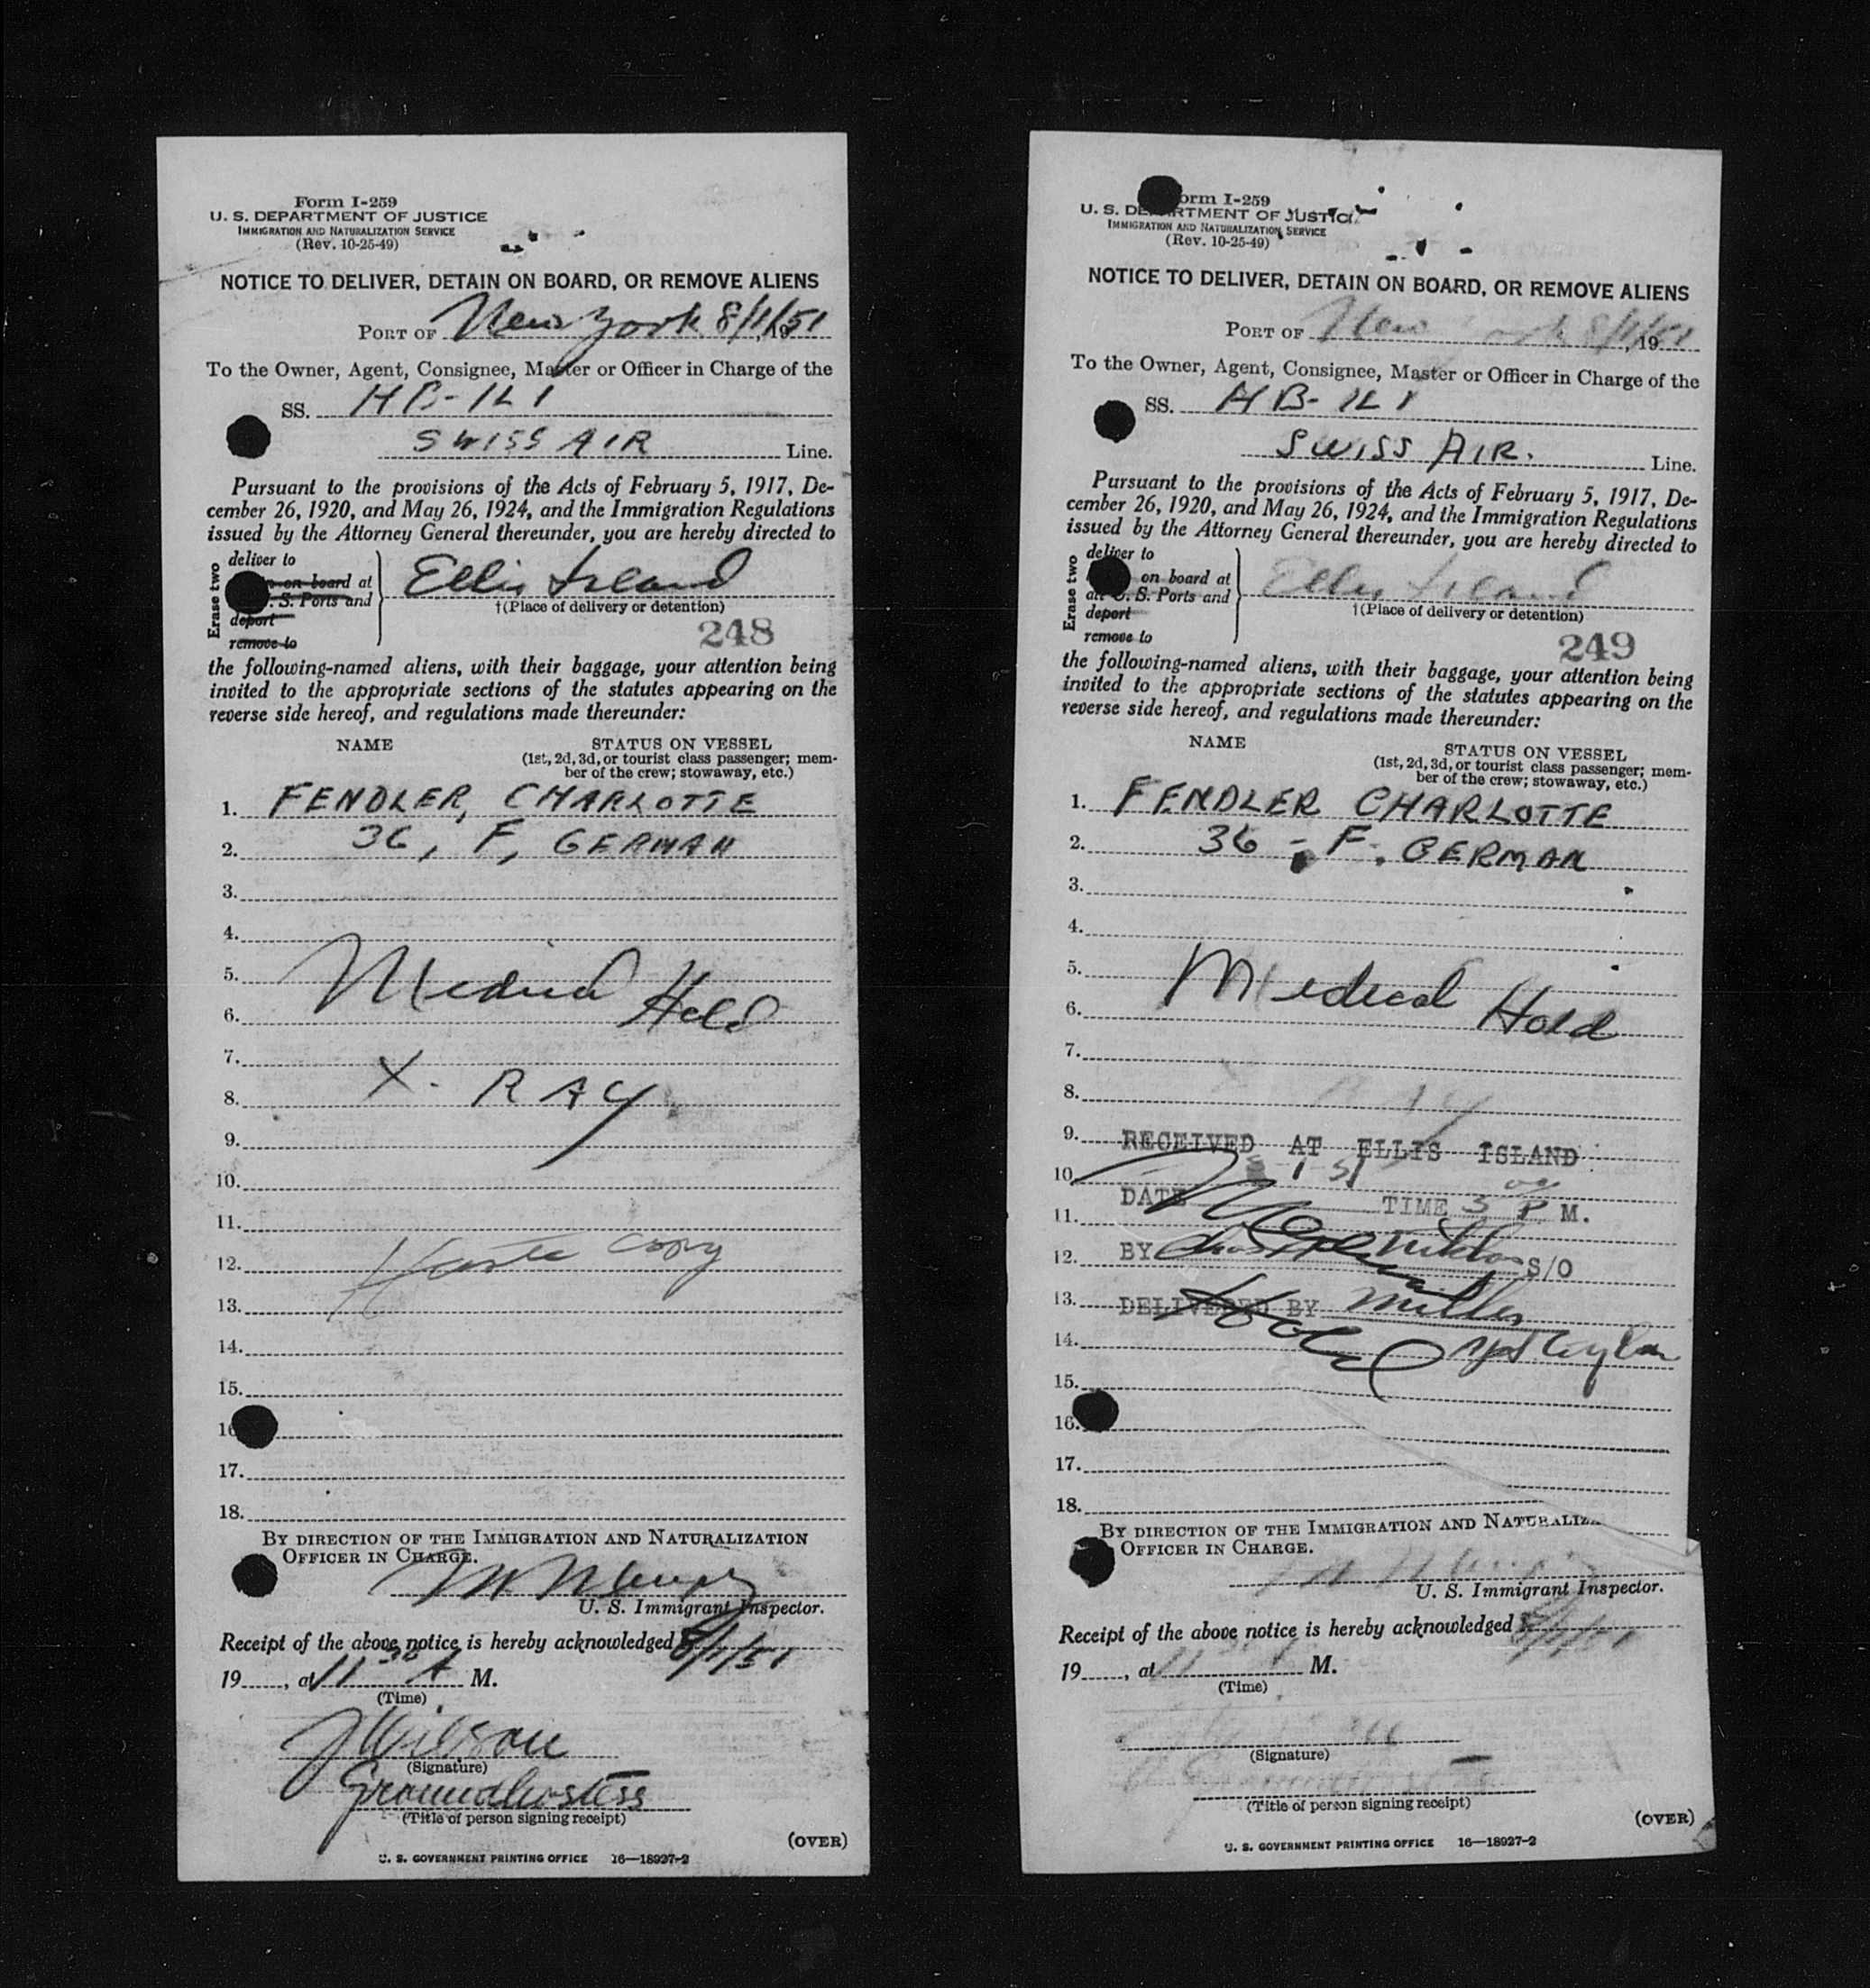 Form I-259
U. S. DEPARTMENT OF JUSTICE
IMMIGRATION AND NATURALIZATION SERVICE
(Rev. 10-25-49)
NOTICE TO DELIVER, DETAIN ON BOARD, OR REMOVE ALIENS
PORT OF New York 8/1/51, 19
To the Owner, Agent, Consignee, Master or Officer in Charge of the
SS. HB-ILI
SWISS AIR Line.
Pursuant to the provisions of the Acts of February 5, 1917, De-
cember 26, 1920, and May 26, 1924, and the Immigration Regulations
issued by the Attorney General thereunder, you are hereby directed to
Erase two
deliver to
on board at
S. Ports and
deport
remove to
Ellis Island
†(Place of delivery or detention)
248
the following-named aliens, with their baggage, your attention being
invited to the appropriate sections of the statutes appearing on the
reverse side hereof, and regulations made thereunder:
NAME STATUS ON VESSEL
(1st, 2d, 3d, or tourist class passenger; mem-
ber of the crew; stowaway, etc.)
1. FENDLER, CHARLOTTE
2. 36, F, GERMAN
3.
4.
5. Medical
6. Hold
7.
8. X-RAY
9.
10.
11.
12. copy
13.
14.
15.
16
17.
18.
BY DIRECTION OF THE IMMIGRATION AND NATURALIZATION
OFFICER IN CHARGE.
U. S. Immigrant Inspector.
Receipt of the above notice is hereby acknowledged 8/1/51
19, at 11 30 A M.
(Time)
J Wilson
(Signature)
Groundhostess
(Title of person signing receipt)
(OVER)
U. S. GOVERNMENT PRINTING OFFICE 16—18927-2
orm I-259
U. S. DE RTMENT OF JUSTICE
IMMIGRATION AND NATURALIZATION SERVICE
(Rev. 10-25-49)
NOTICE TO DELIVER, DETAIN ON BOARD, OR REMOVE ALIENS
PORT OF New York 8/1/51, 19
To the Owner, Agent, Consignee, Master or Officer in Charge of the
SS. HB-ILI
SWISS AIR. Line.
Pursuant to the provisions of the Acts of February 5, 1917, De-
cember 26, 1920, and May 26, 1924, and the Immigration Regulations
issued by the Attorney General thereunder, you are hereby directed to
Erase two
deliver to
on board at
all U. S. Ports and
deport
remove to
Ellis Island
†(Place of delivery or detention)
249
the following-named aliens, with their baggage, your attention being
invited to the appropriate sections of the statutes appearing on the
reverse side hereof, and regulations made thereunder:
NAME STATUS ON VESSEL
(1st, 2d, 3d, or tourist class passenger; mem-
ber of the crew; stowaway, etc.)
1. FENDLER CHARLOTTE
2. 36 - F. GERMAN
3.
4.
5. Medical
6. Hold
7.
8. RAY
9. RECEIVED AT ELLIS ISLAND
10. 8 1 51
11. DATE TIME 3 00 P M.
12. BY S/O
13. DELIVERED BY Miller
14.
15.
16.
17.
18.
BY DIRECTION OF THE IMMIGRATION AND NATURALIZA
OFFICER IN CHARGE.
U. S. Immigrant Inspector.
Receipt of the above notice is hereby acknowledged 8/1/51
19, at 11 M.
(Time)
(Signature)
(Title of person signing receipt)
(OVER)
U. S. GOVERNMENT PRINTING OFFICE 16—18927-2